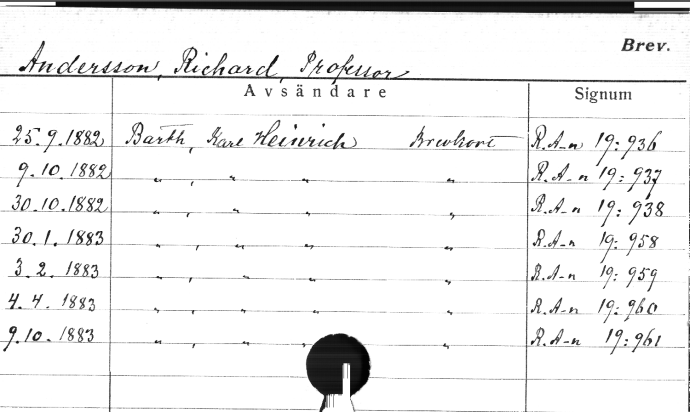 Brev.
Andersson, Richard, Professor
Avsändare Signum
25.9.1882 Barth, Karl Heinrich Brevkort R.A-n 19:936
9.10.1882 „ , „ „ „ R.A-n 19:937
30.10.1882 „ , „ „ „ R.A-n 19:938
30.1.1883 „ , „ „ „ R.A-n 19:958
3.2.1883 „ , „ „ „ R.A-n 19:959
4.4.1883 „ , „ „ „ R.A-n 19:960
9.10.1883 „ , „ „ „ R.A-n 19:961